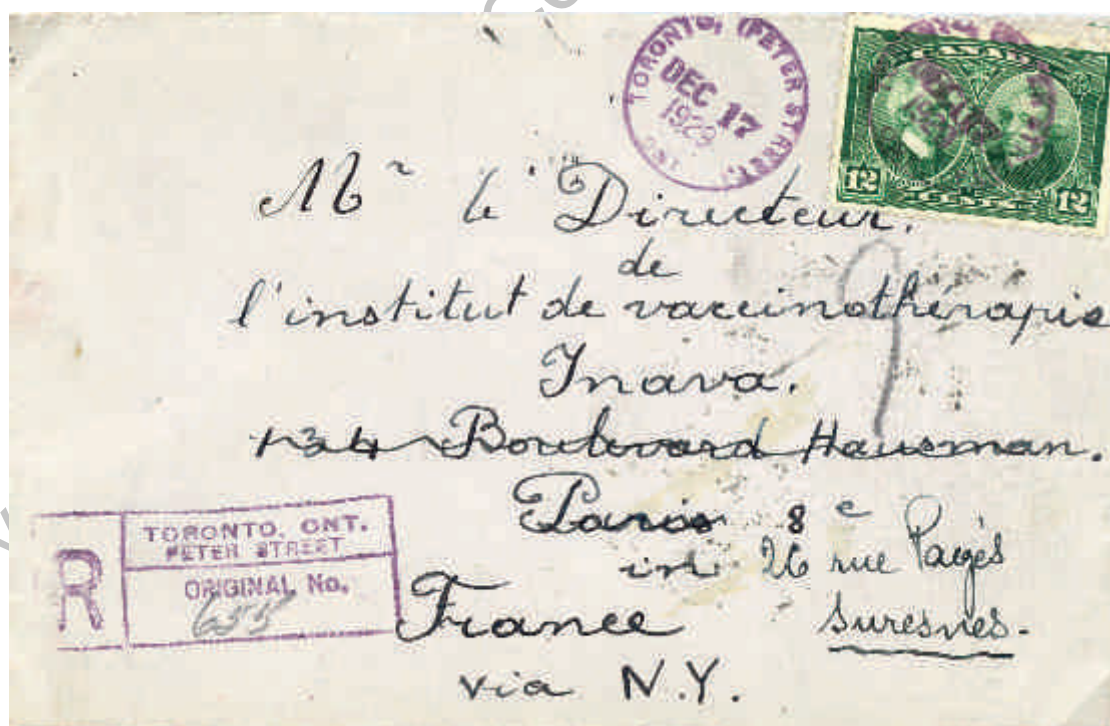 TORONTO, (PETER STREET)
DEC 17
1928
ONT.
CANADA
12 CENTS 12
Mr le Directeur.
de
l'institut de vaccinothérapie
Inava.
134 Boulevard Hausman.
Paris 8e
in 26 rue Pagès
France Suresnes.
via N.Y.
R
TORONTO, ONT.
PETER STREET
ORIGINAL No.
655